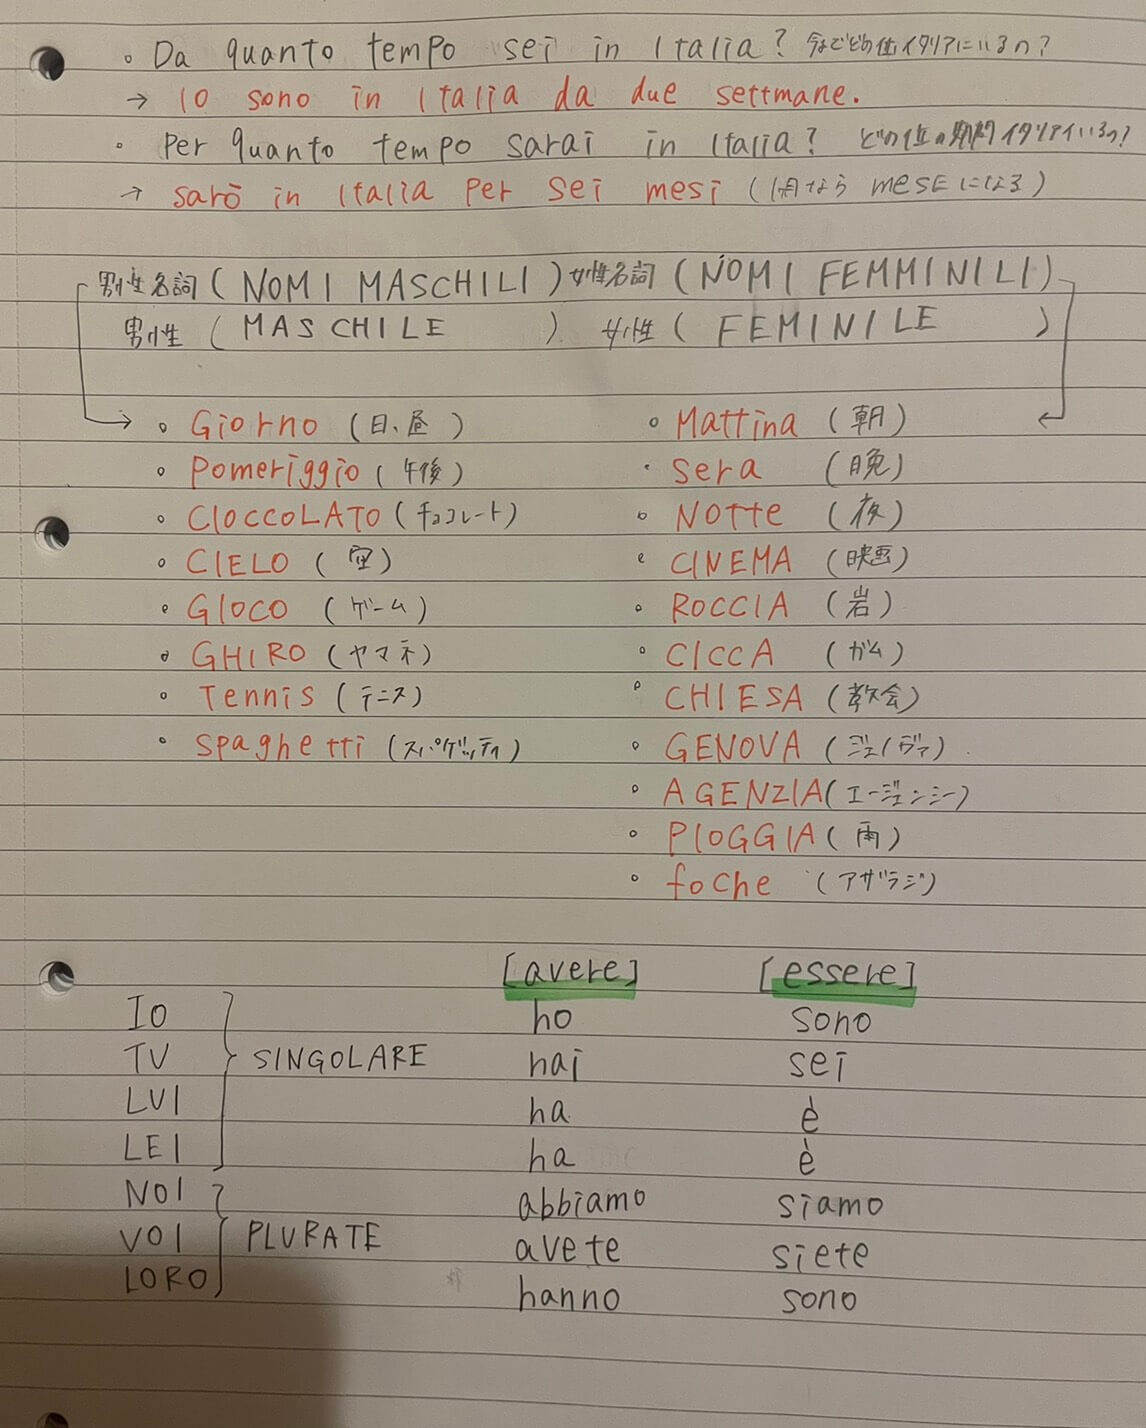 。Da quanto tempo sei in Italia? 今までどの位イタリアにいるの?
→ Io sono in Italia da due settmane.
・ Per quanto tempo sarai in Italia? どの位の期間イタリアいるの?
→ sarò in Italia per sei mesi (1ヶ月なら mesE になる)
男性名詞 ( NOMI MASCHILI ) 女性名詞 ( NOMI FEMMINILI )
男性 ( MASCHILE ) 女性 ( FEMINILE )
。Giorno (日、昼) 。Mattina (朝)
。Pomeriggio (午後) ・sera (晩)
。CIOCCOLATO (チョコレート) 。NOTTE (夜)
。CIELO (空) 。CINEMA (映画)
。GIOCO (ゲーム) 。ROCCIA (岩)
。GHIRO (ヤマネ) 。CICCA (ガム)
。Tennis (テニス) 。CHIESA (教会)
。spaghetti (スパゲッティ) 。GENOVA (ジェノヴァ)
。AGENZIA (エージェンシー)
。PIOGGIA (雨)
。foche (アザラシ)
[avere] [essere]
IO ho sono
TU SINGOLARE hai sei
LUI ha è
LEI ha è
NOI abbiamo siamo
VOI PLURATE avete siete
LORO hanno sono